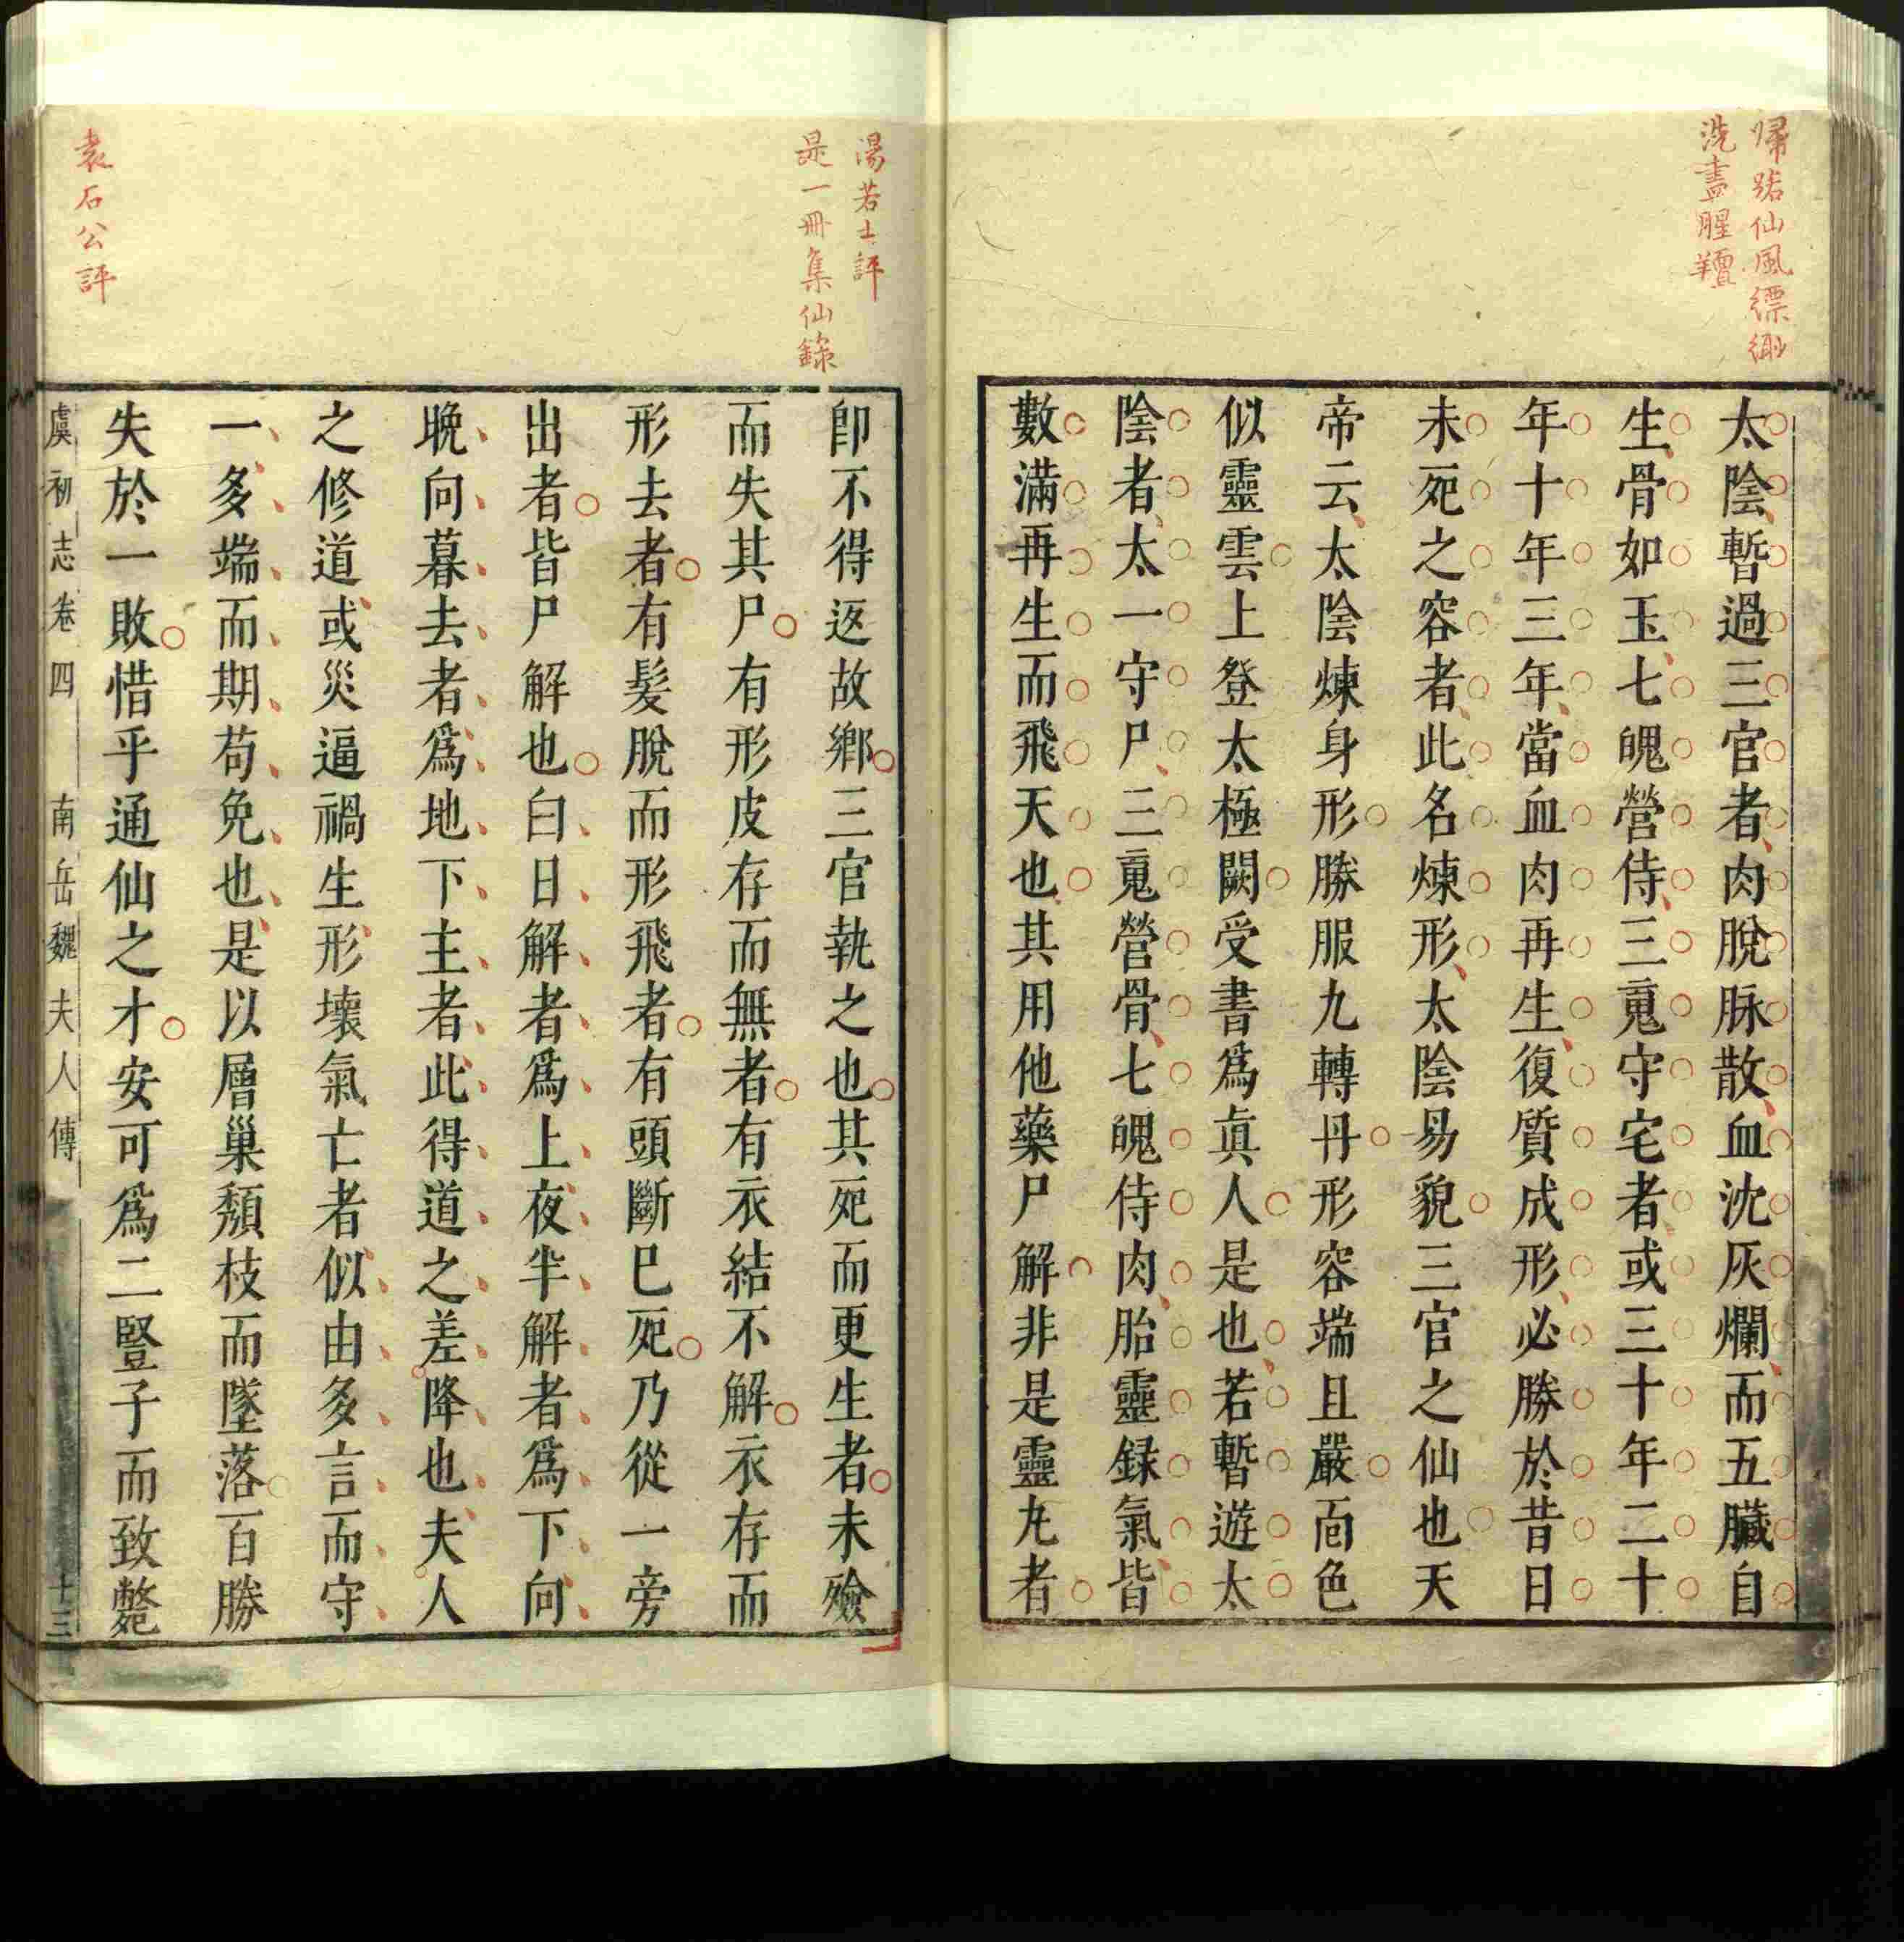 歸路仙風縹緲
洗盡腥羶
太陰暫過三官者肉脫脉散血沈灰爛而五臟自
生骨如玉七魄營侍三䰟守宅者或三十年二十
年十年三年當血肉再生復質成形必勝於昔日
未死之容者此名煉形太陰易貌三官之仙也天
帝云太陰煉身形勝服九轉丹形容端且嚴面色
似靈雲上登太極闕受書爲眞人是也若暫遊太
陰者太一守尸三䰟營骨七魄侍肉胎靈録氣皆
數滿再生而飛天也其用他藥尸解非是靈丸者
湯若士評
是一冊集仙錄
卽不得返故鄉三官執之也其死而更生者未殮
而失其尸有形皮存而無者有衣結不解衣存而
形去者有髮脫而形飛者有頭斷已死乃從一旁
出者皆尸解也白日解者爲上夜半解者爲下向
晚向暮去者爲地下主者此得道之差降也夫人
之修道或災逼禍生形壞氣亡者似由多言而守
一多端而期苟免也是以層巢頹枝而墜落百勝
失於一敗惜乎通仙之才安可爲二豎子而致斃
袁石公評
虞初志卷四 南岳魏夫人傳 十三